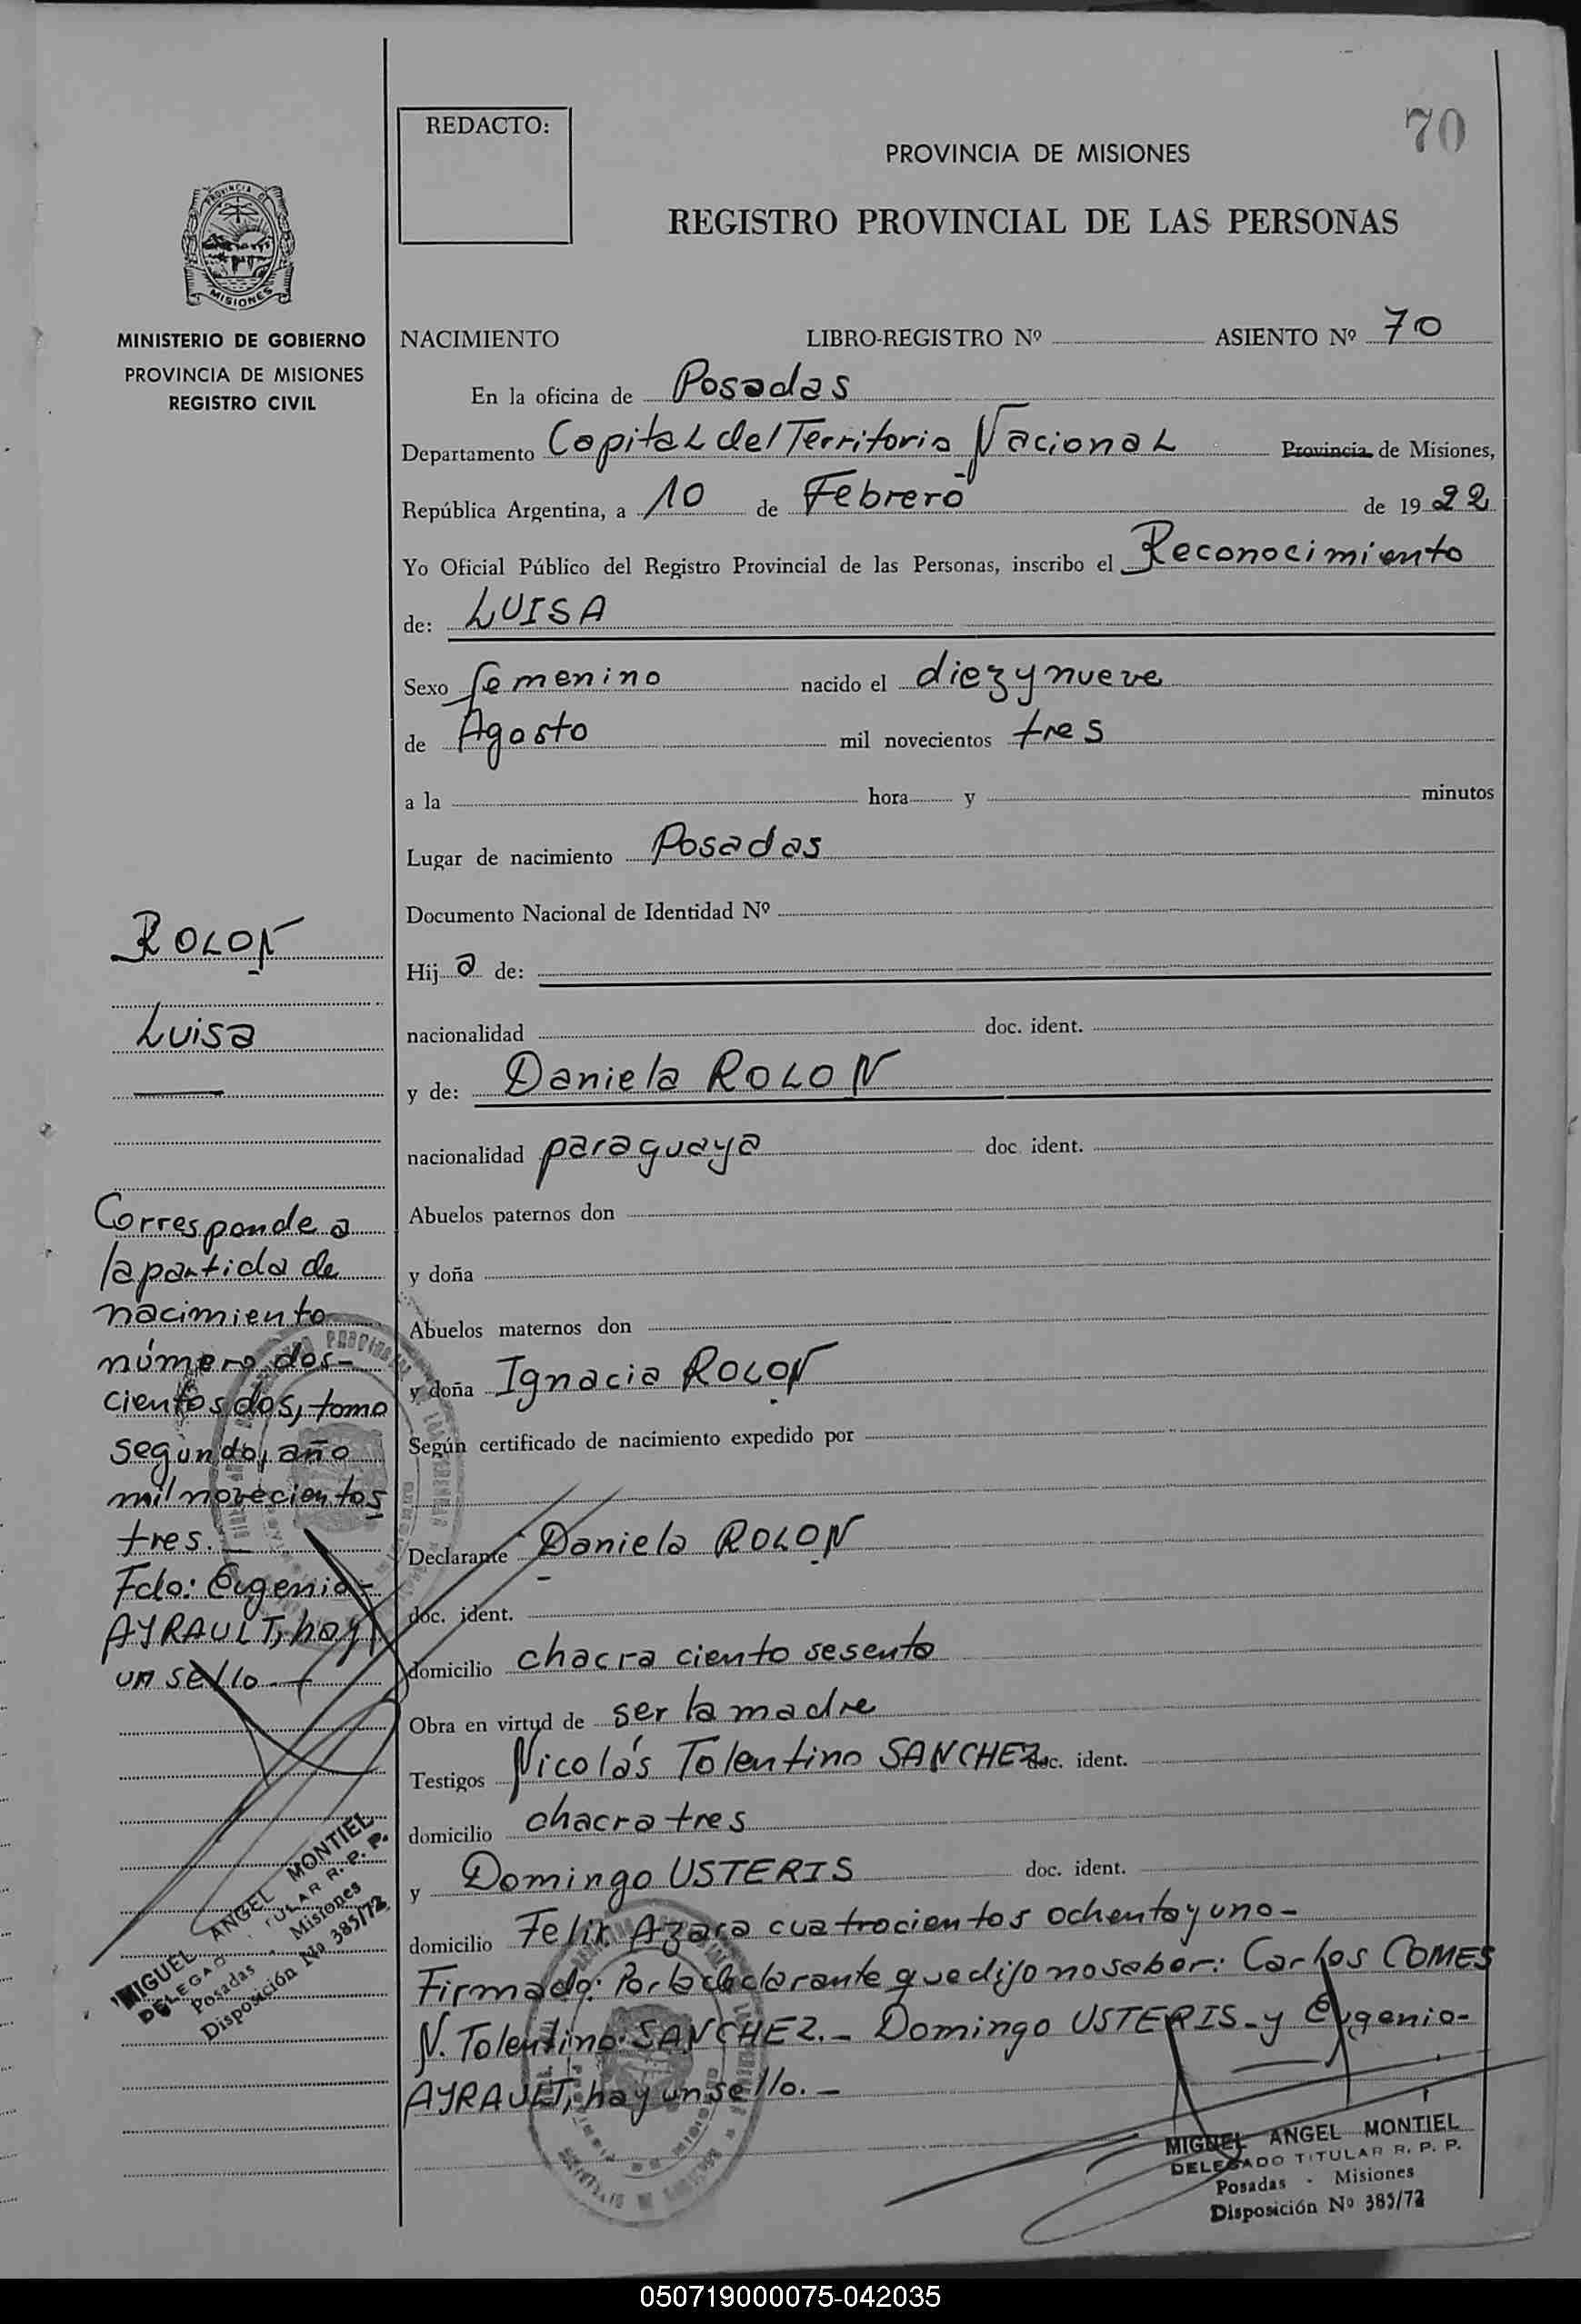 REDACTO:
70
PROVINCIA DE MISIONES
REGISTRO PROVINCIAL DE LAS PERSONAS
MISIONES
MINISTERIO DE GOBIERNO
PROVINCIA DE MISIONES
REGISTRO CIVIL
NACIMIENTO LIBRO-REGISTRO Nº ASIENTO Nº 70
En la oficina de Posadas
Departamento Capital del Territorio Nacional Provincia de Misiones,
República Argentina, a 10 de Febrero de 1922
Yo Oficial Público del Registro Provincial de las Personas, inscribo el Reconocimiento
de: LUISA
Sexo femenino nacido el diez y nueve
de Agosto mil novecientos tres
a la hora y minutos
Lugar de nacimiento Posadas
Documento Nacional de Identidad Nº
Hija de:
nacionalidad doc. ident.
y de: Daniela ROLON
nacionalidad paraguaya doc. ident.
Abuelos paternos don
y doña
Abuelos maternos don
y doña Ignacia ROLON
Según certificado de nacimiento expedido por
Declarante Daniela ROLON
doc. ident.
domicilio chacra ciento sesenta
Obra en virtud de ser la madre
Testigos Nicolás Tolentino SANCHEZ doc. ident.
domicilio chacra tres
y Domingo USTERIS doc. ident.
domicilio Felix Azara cuatrocientos ochenta y uno-
Firmado: Por la declarante que dijo no saber: Carlos COMES
N. Tolentino SANCHEZ.- Domingo USTERIS-y Eugenio-
AYRAULT, hay un sello.-
MIGUEL ANGEL MONTIEL
DELEGADO TITULAR R. P. P.
Posadas - Misiones
Disposición Nº 385/72
ROLON
Luisa
Corresponde a
la partida de
nacimiento
número dos-
cientos dos, tomo
segundo, año
mil novecientos
tres.-
Fdo: Eugenio-
AYRAULT, hay
un sello.-
MIGUEL ANGEL MONTIEL
DELEGADO TITULAR R. P. P.
Posadas - Misiones
Disposición Nº 385/72
050719000075-042035